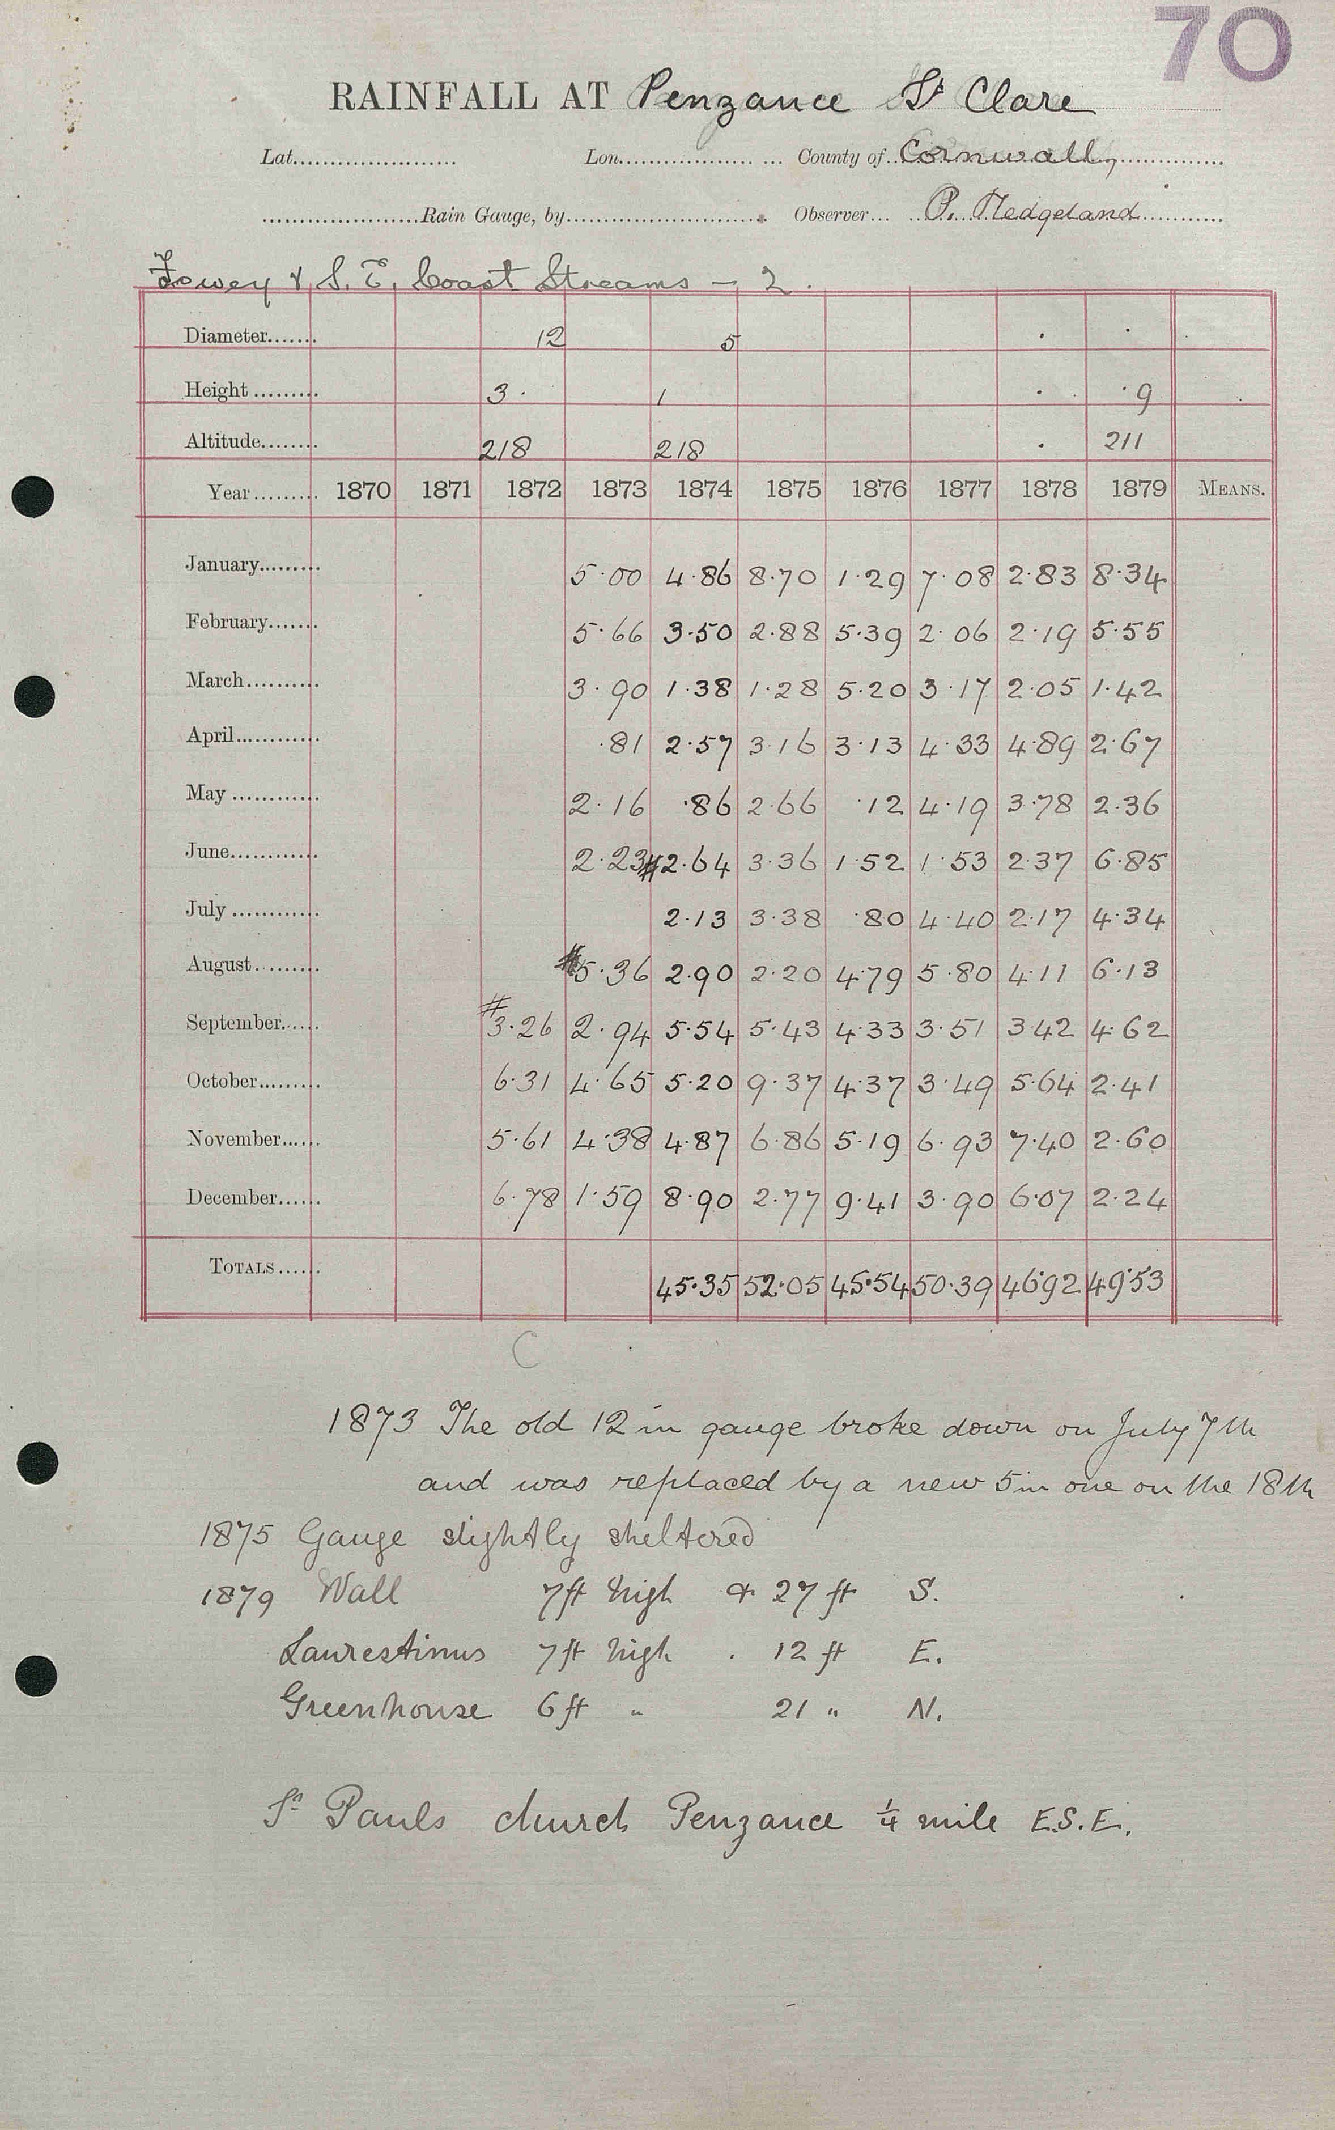 70
RAINFALL AT Penzance St Clare
Lat...................... Lon................... ... County of...Cornwall,...............
......................Rain Gauge, by............................ Observer... ...P. Hedgeland............
Fowey & S.E. Coast Streams - 2.
Diameter....... 12 5
Height ......... 3 . 1 . 9
Altitude........ 218 218 211
Year......... 1870 1871 1872 1873 1874 1875 1876 1877 1878 1879 MEANS.
January......... 5.00 4.86 8.70 1.29 7.08 2.83 8.34
February....... 5.66 3.50 2.88 5.39 2.06 2.19 5.55
March.......... 3.90 1.38 1.28 5.20 3.17 2.05 1.42
April............ .81 2.57 3.16 3.13 4.33 4.89 2.67
May ............ 2.16 .86 2.66 .12 4.19 3.78 2.36
June............ 2.23 #2.64 3.36 1.52 1.53 2.37 6.85
July ............ 2.13 3.38 .80 4.40 2.17 4.34
August.......... #5.36 2.90 2.20 4.79 5.80 4.11 6.13
September...... #3.26 2.94 5.54 5.43 4.33 3.51 3.42 4.62
October......... 6.31 4.65 5.20 9.37 4.37 3.49 5.64 2.41
November...... 5.61 4.38 4.87 6.86 5.19 6.93 7.40 2.60
December...... 6.78 1.59 8.90 2.77 9.41 3.90 6.07 2.24
TOTALS...... 45.35 52.05 45.54 50.39 46.92 49.53
C
1873 The old 12 in gauge broke down on July 7th
and was replaced by a new 5in one on the 18th
1875 Gauge slightly sheltered
1879 Wall 7ft high & 27 ft S.
Laurestinus 7ft high . 12 ft E.
Greenhouse 6 ft " 21 " N.
St Pauls church Penzance 1/4 mile E.S.E.